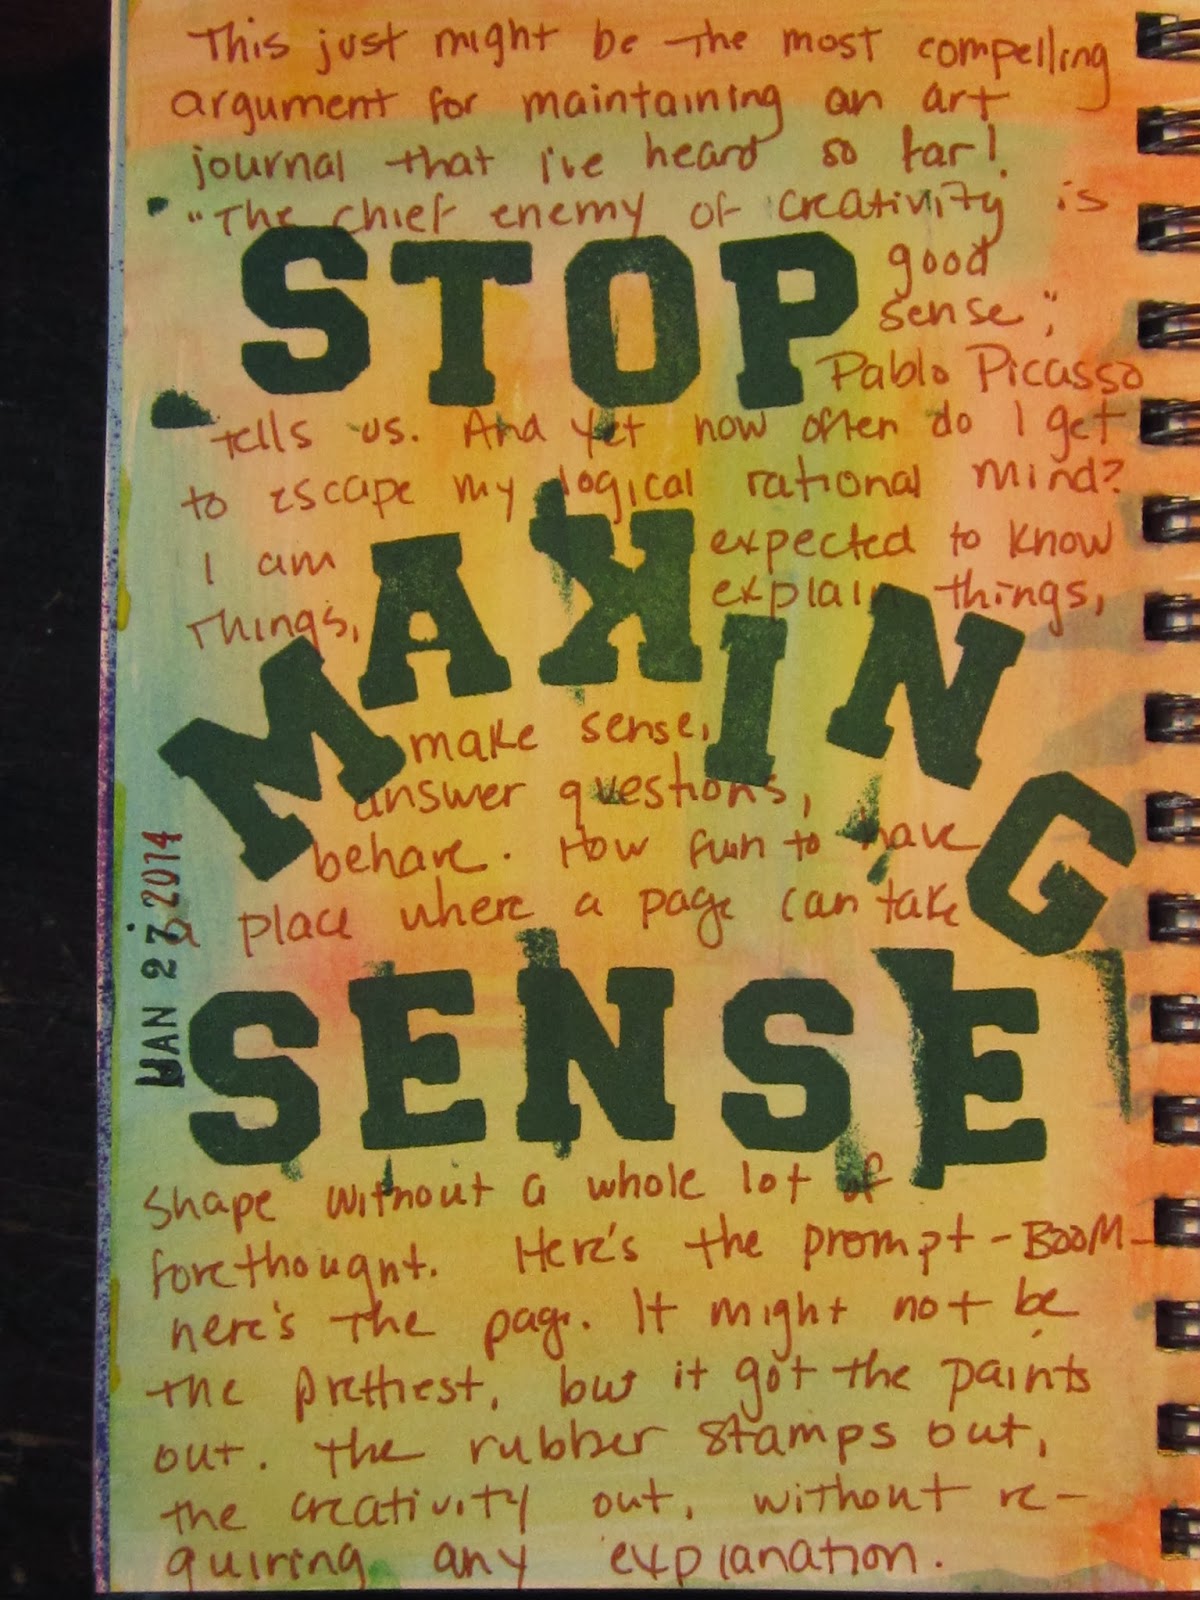 This just might be the most compelling
argument for maintaining an art
journal that I've heard so far!
"The chief enemy of creativity is
STOP
good
sense";
Pablo Picasso
tells us. And yet how often do I get
to escape my logical rational mind?
I am expected to know
things, explain things,
MAKING
make sense,
answer questions,
behave. How fun to have
a place where a page can take
JAN 27 2014
SENSE
shape without a whole lot of
forethought. Here's the prompt - BOOM -
here's the page. It might not be
the prettiest, but it got the paints
out. the rubber stamps out,
the creativity out, without re-
quiring any explanation.